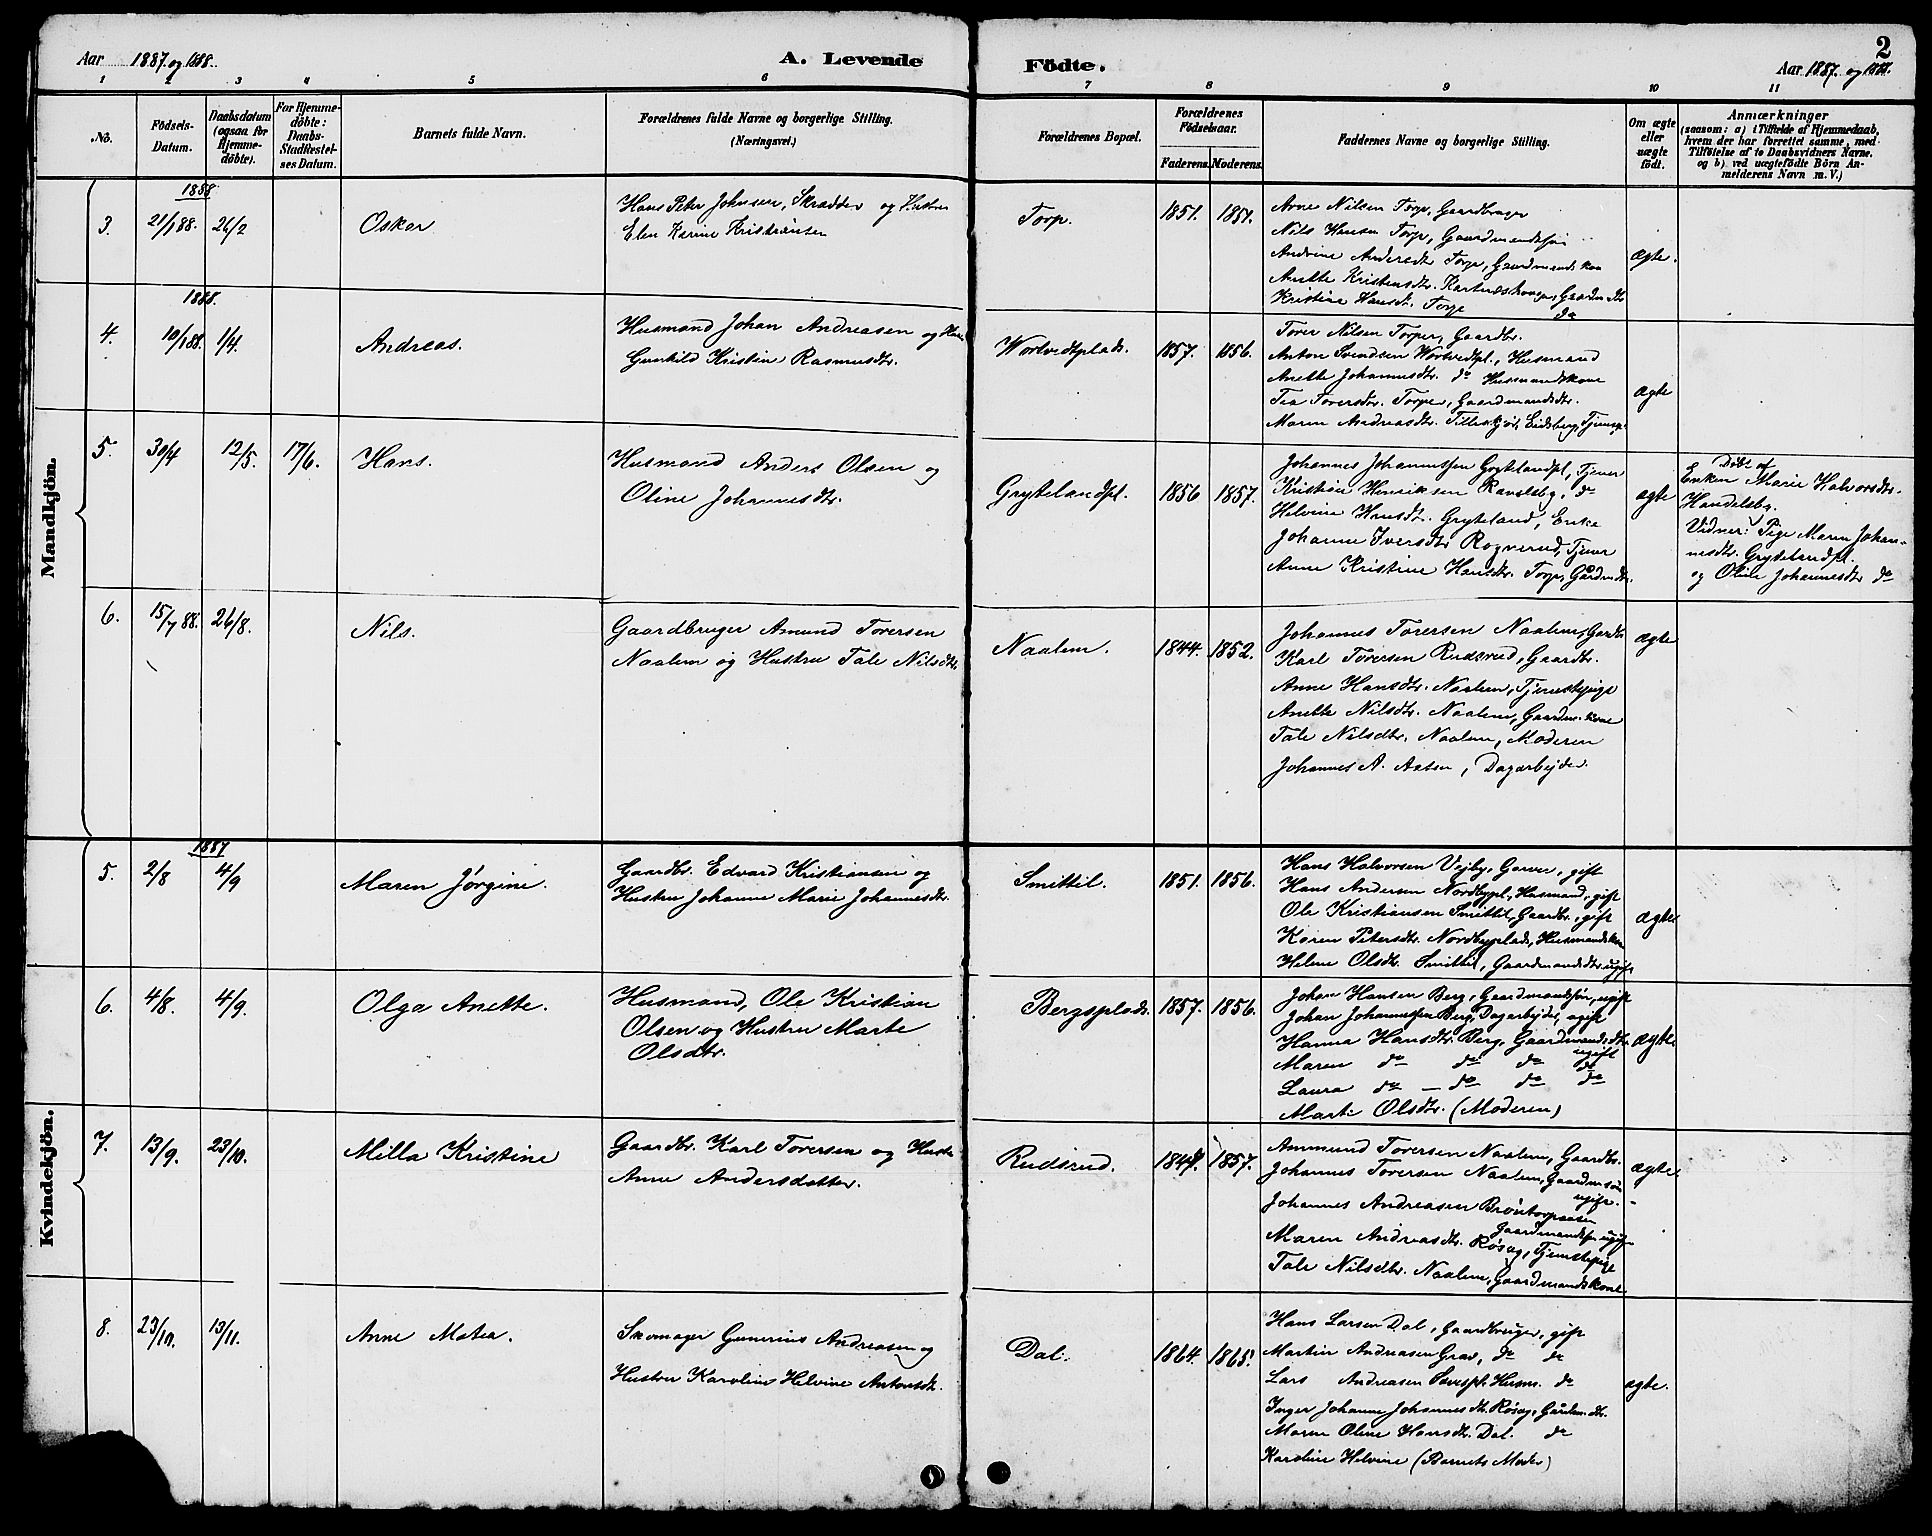 Aar 1887. og 1888.
A. Levende
Födte.
2
Aar 1887. og 1888.
1 2 3 4 5 6 7 8 9 10 11
No.
Födsels-
Datum.
Daabsdatum
(ogsaa for
Hjemme-
döbte).
For Hjemme-
döbte:
Daabs-
Stadfæstel-
ses Datum.
Barnets fulde Navn.
Forældrenes fulde Navne og borgerlige Stilling.
(Næringsvei.)
Forældrenes Bopæl.
Forældrenes
Födselsaar.
Faderens. Moderens.
Faddernes Navne og borgerlige Stilling.
Om ægte
eller
uægte
födt.
Anmærkninger
(saasom: a) i Tilfælde af Hjemmedaab,
hvem der har forrettet samme, med
Tilföielse af to Daabsvidners Navne,
og b) ved uægtefödte Börn An-
melderens Navn m. V.)
Mandkjön.
1888
3. 21/1 88. 26/2 Oskar
Hans Peter Johnsen, Skrædder og Hustru
Elen Karine Kristiansen
Torp. 1851. 1851.
Arne Nilsen Torp, Gaardbruger
Nils Hansen Torp, Gaardmandssøn
Andrine Andersdtr Torp, Gaardmandskone
Anette Kristensdtr. Gaardm.dtr
Kristine Hansdtr. Torp do
ægte.
1888.
4. 10/1 88. 1/4. Andreas.
Husmand Johan Andreasen og Hus.
Gunhild Kristine Rasmusdtr.
Wortvedtplads. 1857. 1856.
Torer Nilsen Torper, Gaardbr.
Anton Svendsen Wortvedtpl., Husmand
Anette Johannesdtr. do Husmandskone
Tea Torersdtr. Torper, Gaardmandsdtr.
Maren Andreasdtr. Eidsberg, Tjenesp.
ægte
5. 30/4 12/5. 17/6. Hans.
Husmand Anders Olsen og
Oline Johannesdtr.
Grytelandpl. 1856 1857.
Johannes Johannessen Grytelandpl, Tjener
Kristian Henriksen Ravelsby, do
Helvine Hansdtr. Gryteland, Enke
Johanne Iversdtr Rogverud, Tjener
Anne Kristine Hansdtr. Torp, Gårdmdtr.
ægte
Døbt af
Enken Marie Halvorsdtr.
Handelsby.
Vidner: Pige Maren Johan-
nesdtr. Grytelandpl.
og Oline Johannesdtr do
6. 15/7 88. 26/8. Nils.
Gaardbruger Amund Torersen
Naalem og Hustru Tale Nilsdtr.
Naalem. 1844. 1852.
Johannes Torersen Naalem, Gardbr
Karl Torersen Rudsrud, Gaardbr.
Anne Hansdtr. Naalem, Tjenestepige
Anette Nilsdtr. Naalem, Gaardm.kone
Tale Nilsdtr. Naalem, Moderen
Johannes A. Asten, Dagarbejder.
ægte
Kvindekjön.
1887
5. 2/8 4/9 Maren Jørgine.
Gaardbr. Edvard Kristiansen og
Hustru Johanne Marie Johannesdtr.
Smittil. 1851. 1856.
Hans Halvorsen Vejby, Garver, gift
Hans Andersen Nordbypl, Husmand, gift
Ole Kristiansen Smittil, Gaardbr., gift
Karen Petersdtr. Nordbyplads, Husmandskone
Helene Olsdtr. Smittil, Gaardmandsdtr. ugift
ægte
6. 4/8. 4/9. Olga Anette.
Husmand, Ole Kristian
Olsen og Hustru Marte
Olsdtr.
Bergsplads. 1857. 1856.
Johan Hansen Berg, Gaardmandssøn, ugift
Johan Johannessen Berg, Dagarbejder, ugift
Hanna Hansdtr. Berg, Gaardmandsdtr.
ugift
Maren do do do do
Laura do – do do do
Marte Olsdtr. (Moderen)
ægte
7. 13/9. 23/10. Milla Kristine
Gaardbr. Karl Torersen og Hustr.
Anne Andersdatter.
Rudsrud. 1847. 1857.
Ammund Torersen Naalem, Gaardbr.
Johannes Torersen Naalem, Gaardm.søn
ugift.
Johannes Andreasen Brøntorpaasen
Gaardmandssøn ugift
Maren Andreasdtr. Røsæg, Tjenstepige
Tale Nilsdtr. Naalem, Gaardmandskone
ægte
8. 23/10. 13/11. Anne Matea.
Skomager Gunerius Andreasen og
Hustru Karoline Helvine Antonsdtr.
Dal. 1864. 1865.
Hans Larsen Dal, Gaardbruger, gift
Martin Andreasen Grav, do do
Lars Andreasen Husm. do
Inger Johanne Johannesdtr. Røsæg, Gårdm.dtr.
Maren Oline Hansdtr. Dal. do
Karoline Helvine (Barnets Moder)
ægte.